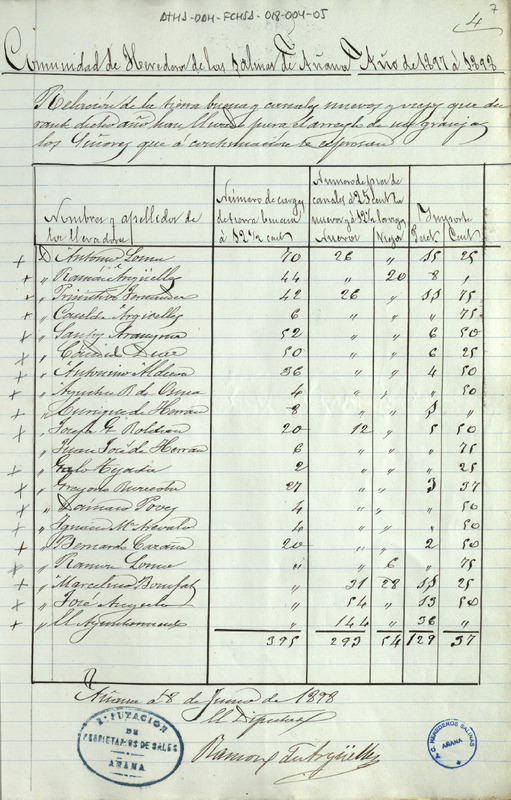 ATHA-DAH-FCHSA-018-004-05
4
7
Comunidad de Herederos de las Salinas de Añana Año de 1897 á 1898
Relacion de la tierra buena y canales nuevos y viejos que du
rante dicho año han llevado para el arreglo de sus granjas
los Señores que á continuacion se expresan
Nombres y apellidos de los llevadores
Número de cargas de tierra buena á 12 1/2 cent
Número de pies de canales á 25 cent los nuevos y á 12 1/2 los viejos
Nuevos Viejos
Importe
Peset. Cent
D Antonio 70 26 " 15 25
" Ramón Argüelles 44 " 20 8 "
" Primitivo Fernandez 42 26 " 11 75
" Casilda Argüelles 6 " " " 75
" Santos 52 " " 6 50
" Cándido 50 " " 6 25
" Antonino 36 " " 4 50
" Agustin R. de Osma 4 " " " 50
" Henrique de Herran 8 " " 1 "
" Joseph G. Roldan 20 12 " 5 50
" Juan José de Herran 6 " " " 75
" Galo Tejada 2 " " " 25
" Gregorio 27 " " 3 37
" Damaso Povez 4 " " " 50
" Ignacio Mª Arevalo 4 " " " 50
" Bernardo 20 " " 2 50
" Ramon " " 6 " 75
" Marcelino Bonifaz " 31 28 11 25
" José Angulo " 54 " 13 50
" El Ayuntamiento " 144 " 36 "
395 293 54 129 37
Añana á 8 de Junio de 1898
El Diputado
Ramon de Argüelles
DIPUTACION
DE
PROPIETARIOS DE SALES
AÑANA
C. HEREDEROS SALINAS
AÑANA